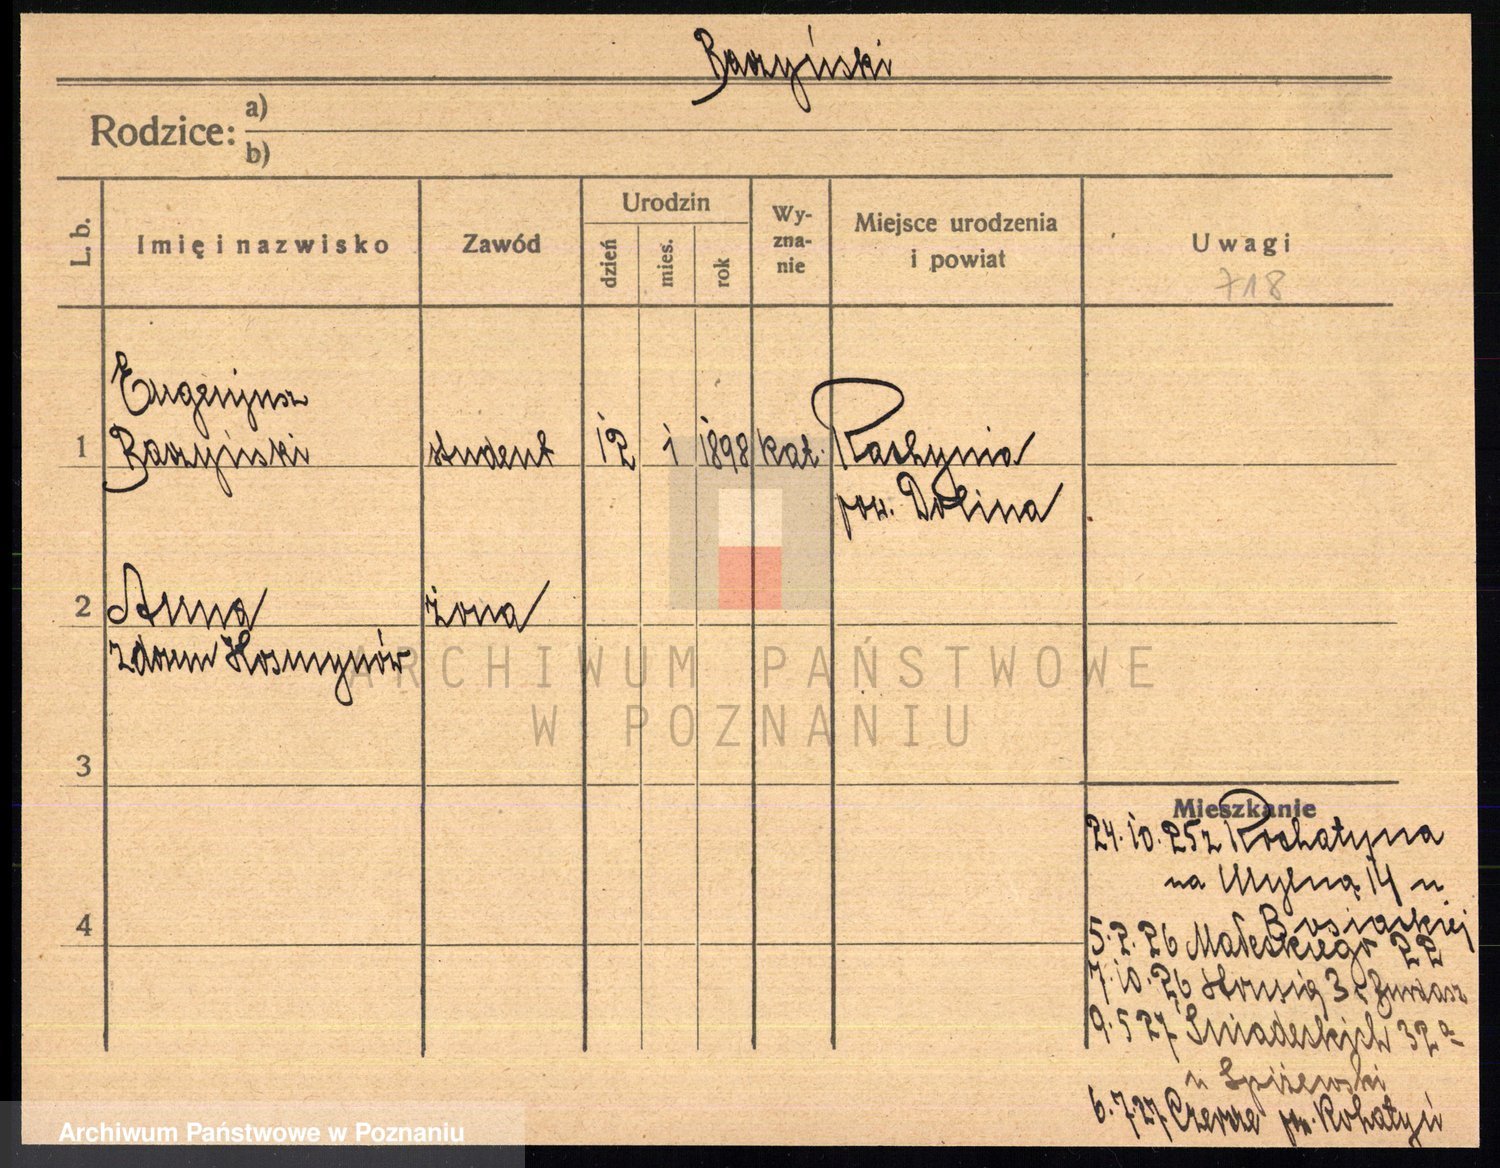 Baczyński
Rodzice: a)
b)
L. b.
Imię i nazwisko
Zawód
Urodzin
dzień
mies.
rok
Wy-
zna-
nie
Miejsce urodzenia
i powiat
Uwagi
718
1
Eugenjusz
Baczyński
student
12
1
1898
kat.
Rachynia
pow. Dolina
2
Anna
żona
zdomu
3
Mieszkanie
24.10.25 z Rochatyna
na 14 u
4
5.2.26 Matejkiego 22
7.10.26 3
9.5.27 Śniadeckich 32a
u Spiżewski
6.7.27 Czercze pow. Rohatyń
ARCHIWUM PAŃSTWOWE
W POZNANIU
Archiwum Państwowe w Poznaniu